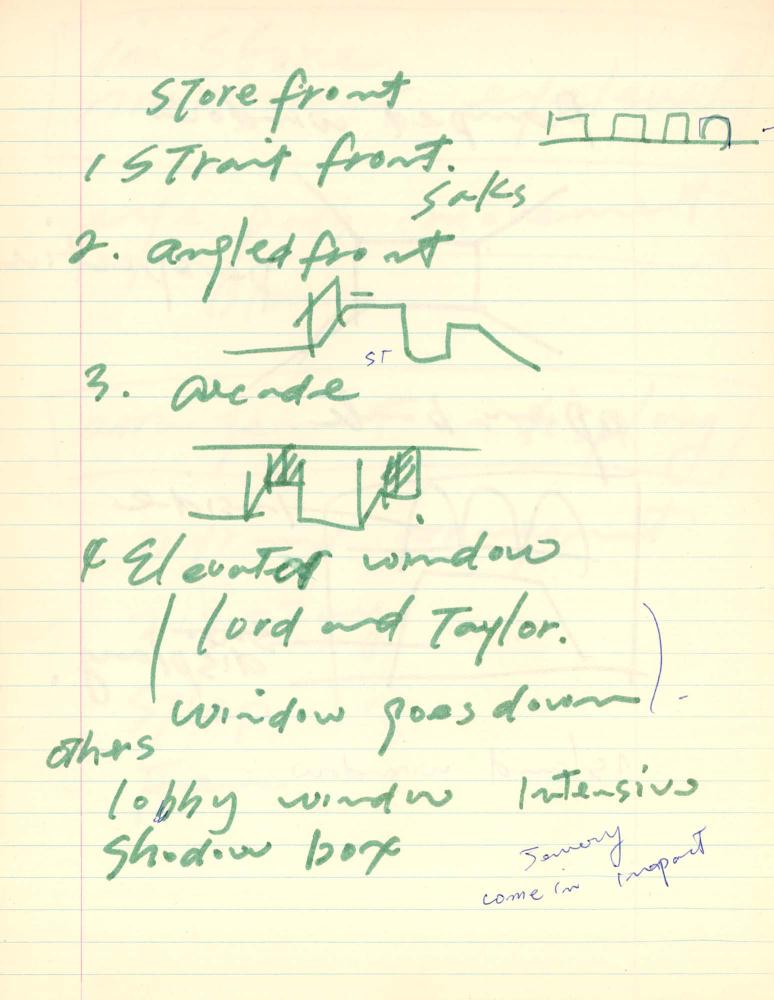 Store front
1 STrait front.
Saks
2. angled front
ST
3. arcade
4 Elevator window
(Lord and Taylor.
window goes down)
others
lobby window Intensive
Shadow box
come in impact